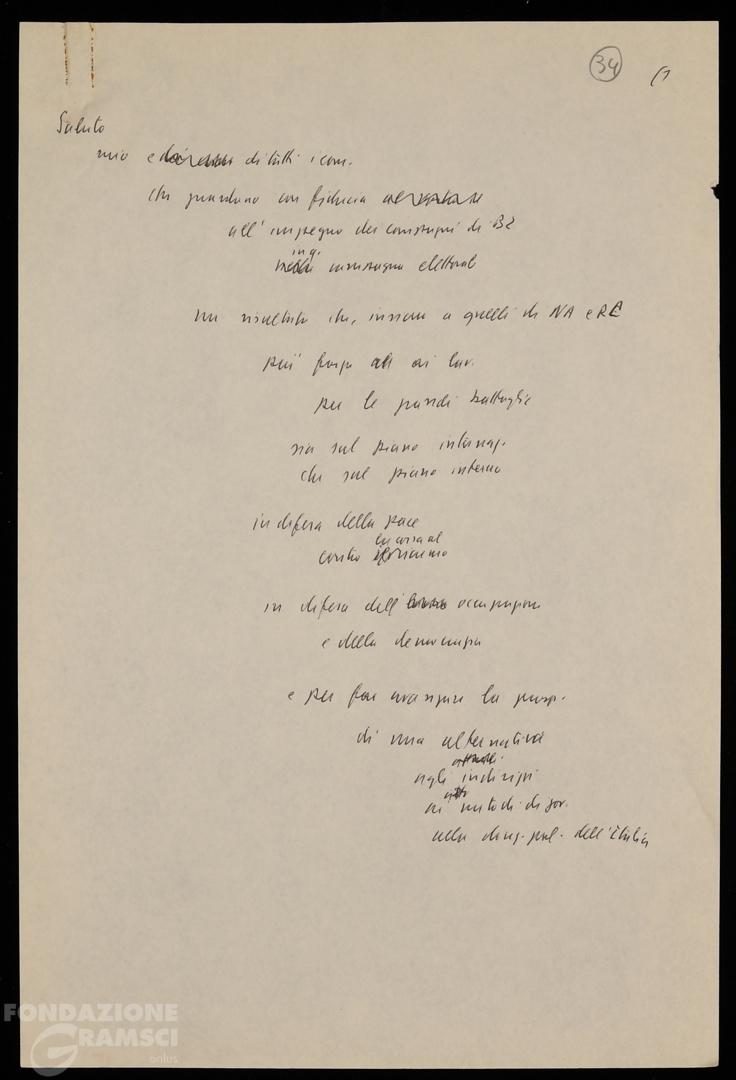 34 (1
Saluto
mio e di tutti i com.
che guardano con fiducia
all'impegno dei compagni di BZ
in q. campagna elettoral
Un risultato che, insieme a quelli di NA e RC
può forza ai lav.
per le grandi battaglie
sia sul piano internaz.
che sul piano interno
in difesa della pace
contro
corsa al riarmo
in difesa dell' occupazione
e della democrazia
e per far avanzare la prosp.
di una alternativa
agli indirizzi
ai metodi di gov.
alla direz. pol. dell'Italia
FONDAZIONE
GRAMSCI
onlus